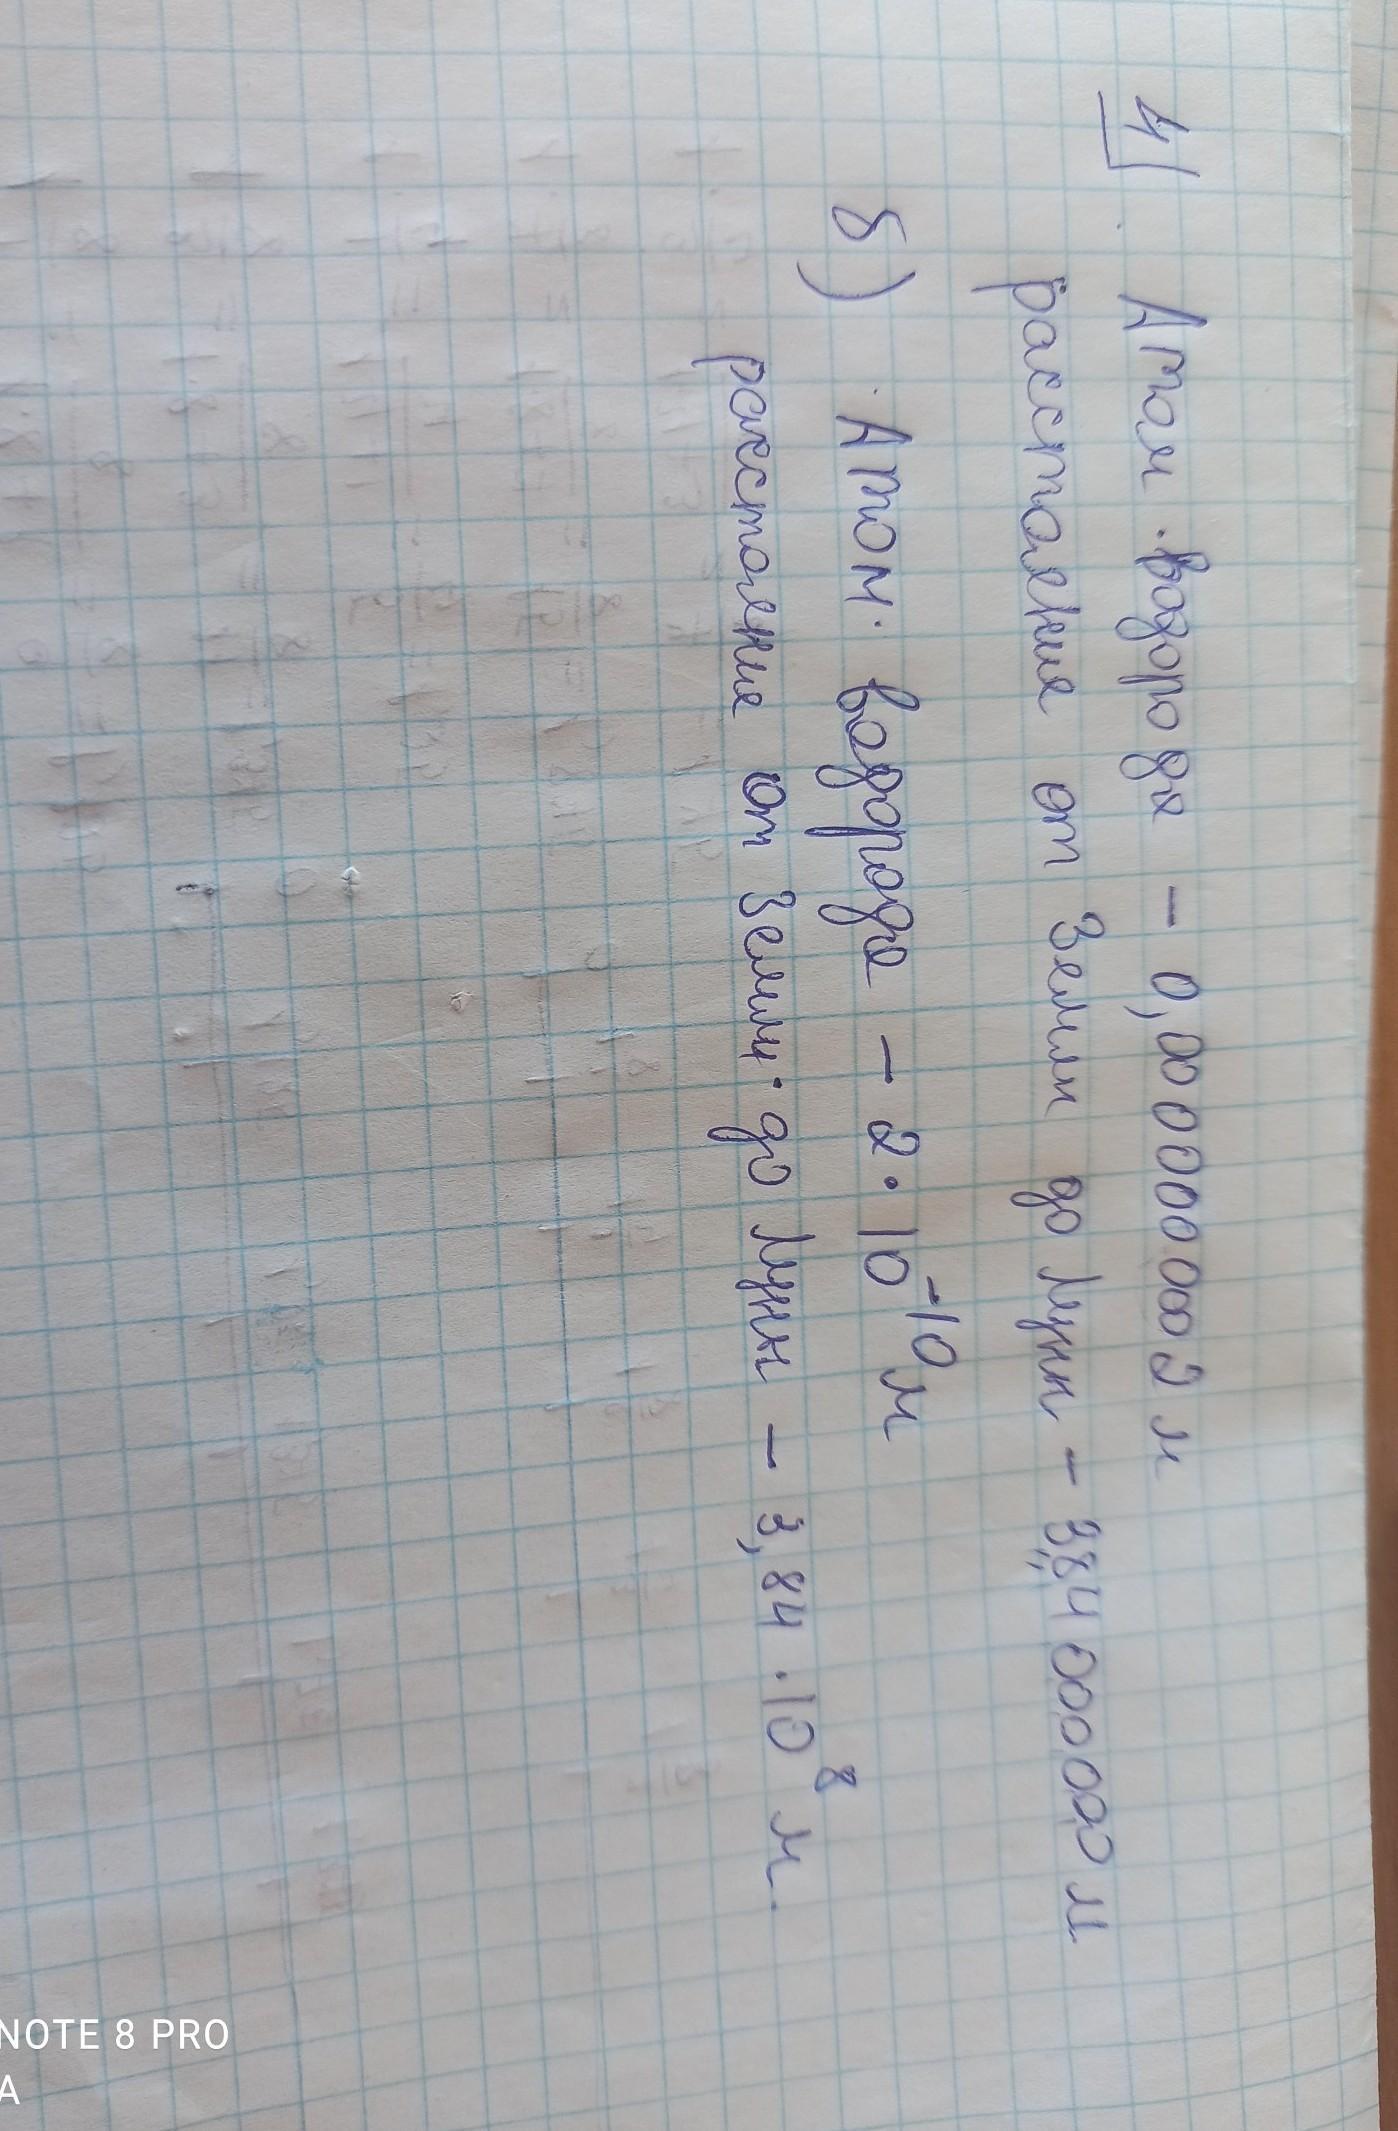 1
Атом водорода - 0,0000000002 м
расстояние от Земли до Луны - 384 000000 м
б) Атом водорода - 2 · 10⁻¹⁰ м
расстояние от Земли до Луны - 3,84 · 10⁸ м.
NOTE 8 PRO
A